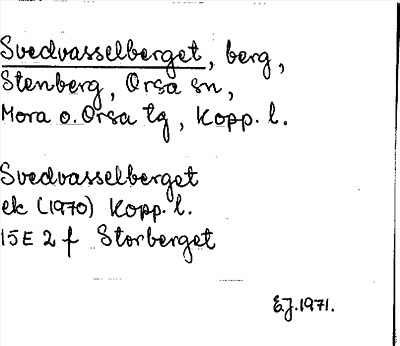 Svedvasselberget, berg,
Stenberg, Orsa sn,
Mora o. Orsa tg, Kopp. l.
Svedvasselberget
ek (1970) Kopp. l.
15E 2 f Storberget
E.J. 1971.